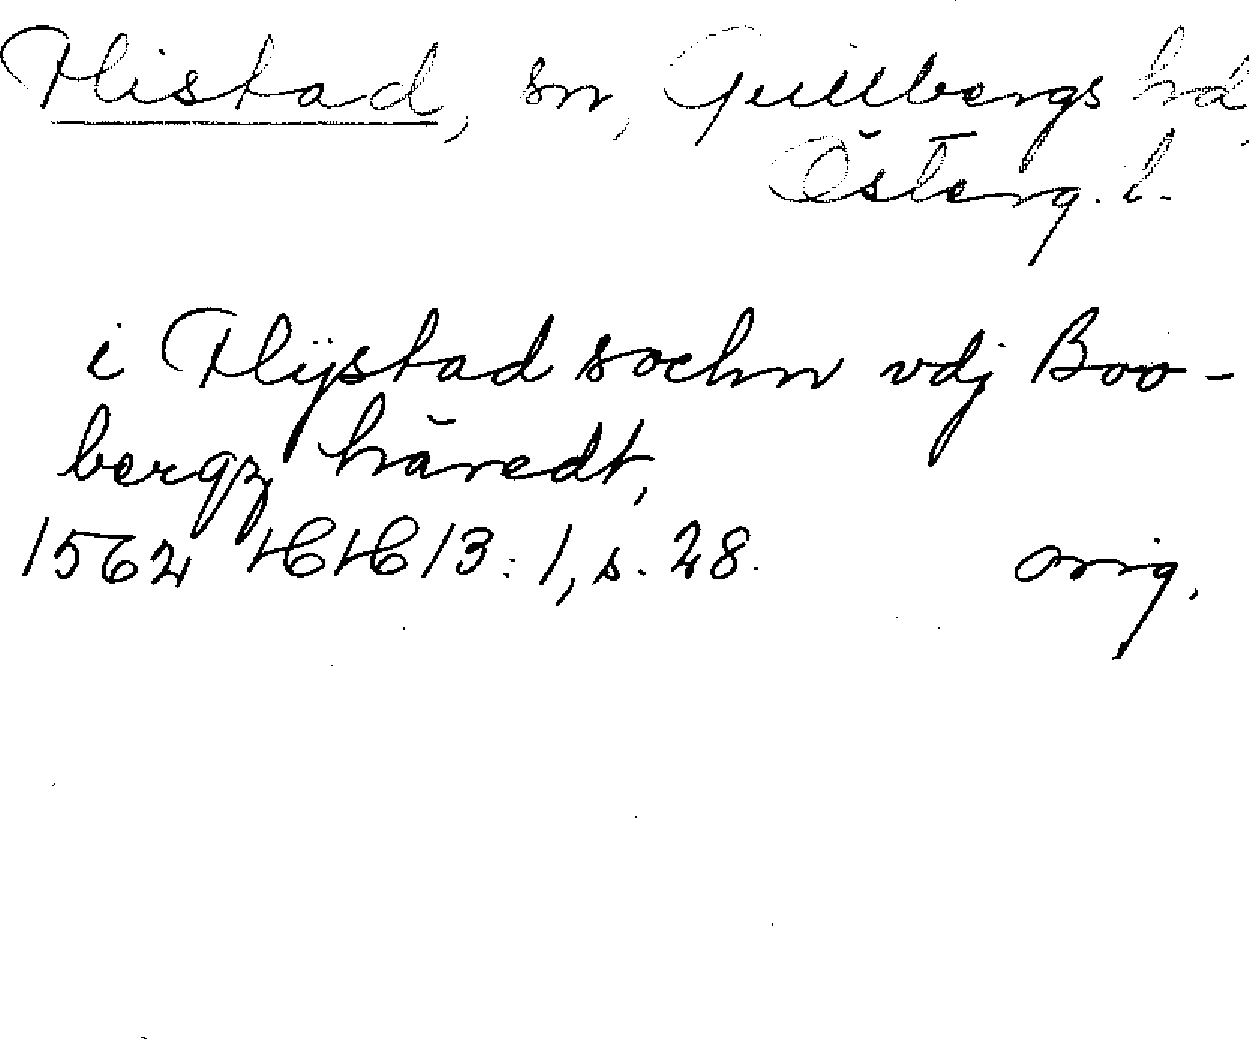 Flistad, sn, Gullbergs hd,
Österg. l.
i Flijstad sochn vdj Boo-
bergz häredt,
1562 HH 13:1, s. 28. orig.